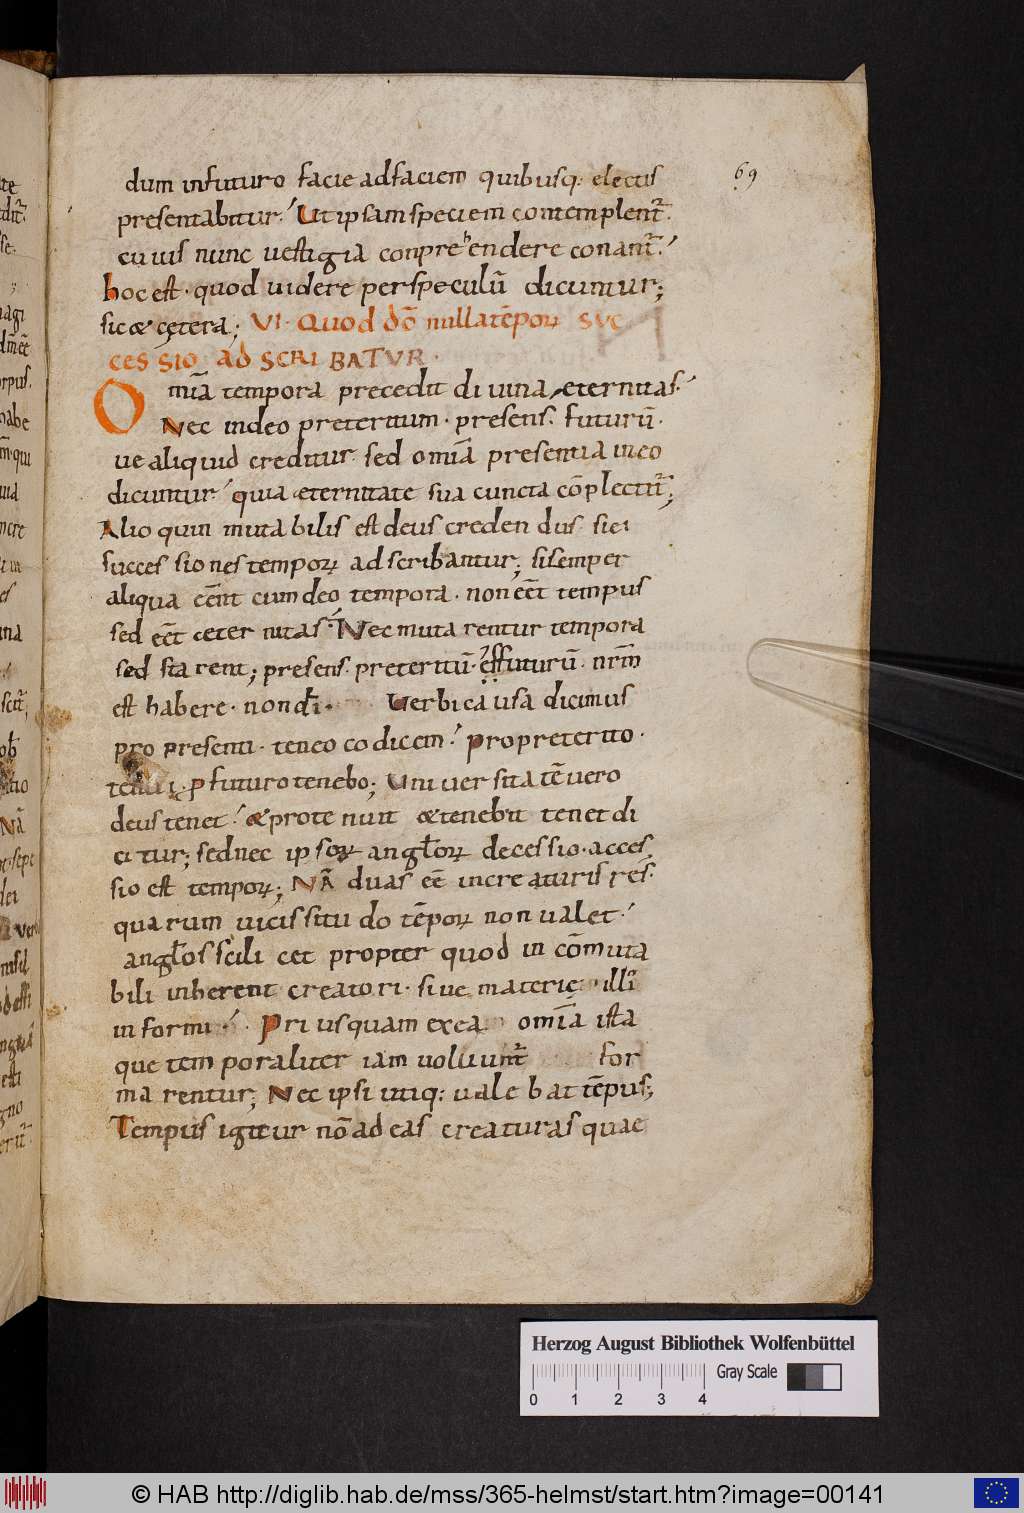 dum infuturo facie adfaciem quibusq: electis
69
presentabitur. Ut ipsam speciem contemplent̄.
cuius nunc uestigia conprehendere conant̄.
hoc est. quod uidere per speculū dicuntur;
sic & cętera; VI. Quod dō nulla tēporꝝ suc
cessio ad scribatur.
Omīa tempora precedit diuina eternitas.
Nec in deo preteritum. presens. futurū.
ue aliquid creditur sed omīa presentia in eo
dicuntur quia eternitate sua cuncta cōplectit̄;
Alioquin mutabilis est deus credendus si ei
successiones temporꝝ adscribantur; si semper
aliqua eēnt cum deo tempora. non eēt tempus
sed eēt aeternitas. Nec mutarentur tempora
sed starent; presens. preteritū. & futurū. nr̄m
est habere. non di. Uerbi causa dicimus
pro presenti. teneo codicem. Pro preterito.
tenui. ꝑ futuro tenebo; Uniuersitatē uero
deus tenet. & pro tenuit & tenebit tenet di
citur; sed nec ipsorꝝ angłorꝝ decessio. acces
sio est temporꝝ; Nā duas eē in creaturis res.
quarum uicissitudo tēporꝝ non ualet.
angłos scilicet propter quod in cōmuta
bili inherent creatori. siue materię illī
informi. Prius quam ex ea omīa ista
que temporaliter iam uoluunt̄ for
marentur; Nec ipsi utiq: ualebat tēpus;
Tempus igitur nō ad eas creaturas quae
Herzog August Bibliothek Wolfenbüttel
Gray Scale
0 1 2 3 4
© HAB http://diglib.hab.de/mss/365-helmst/start.htm?image=00141